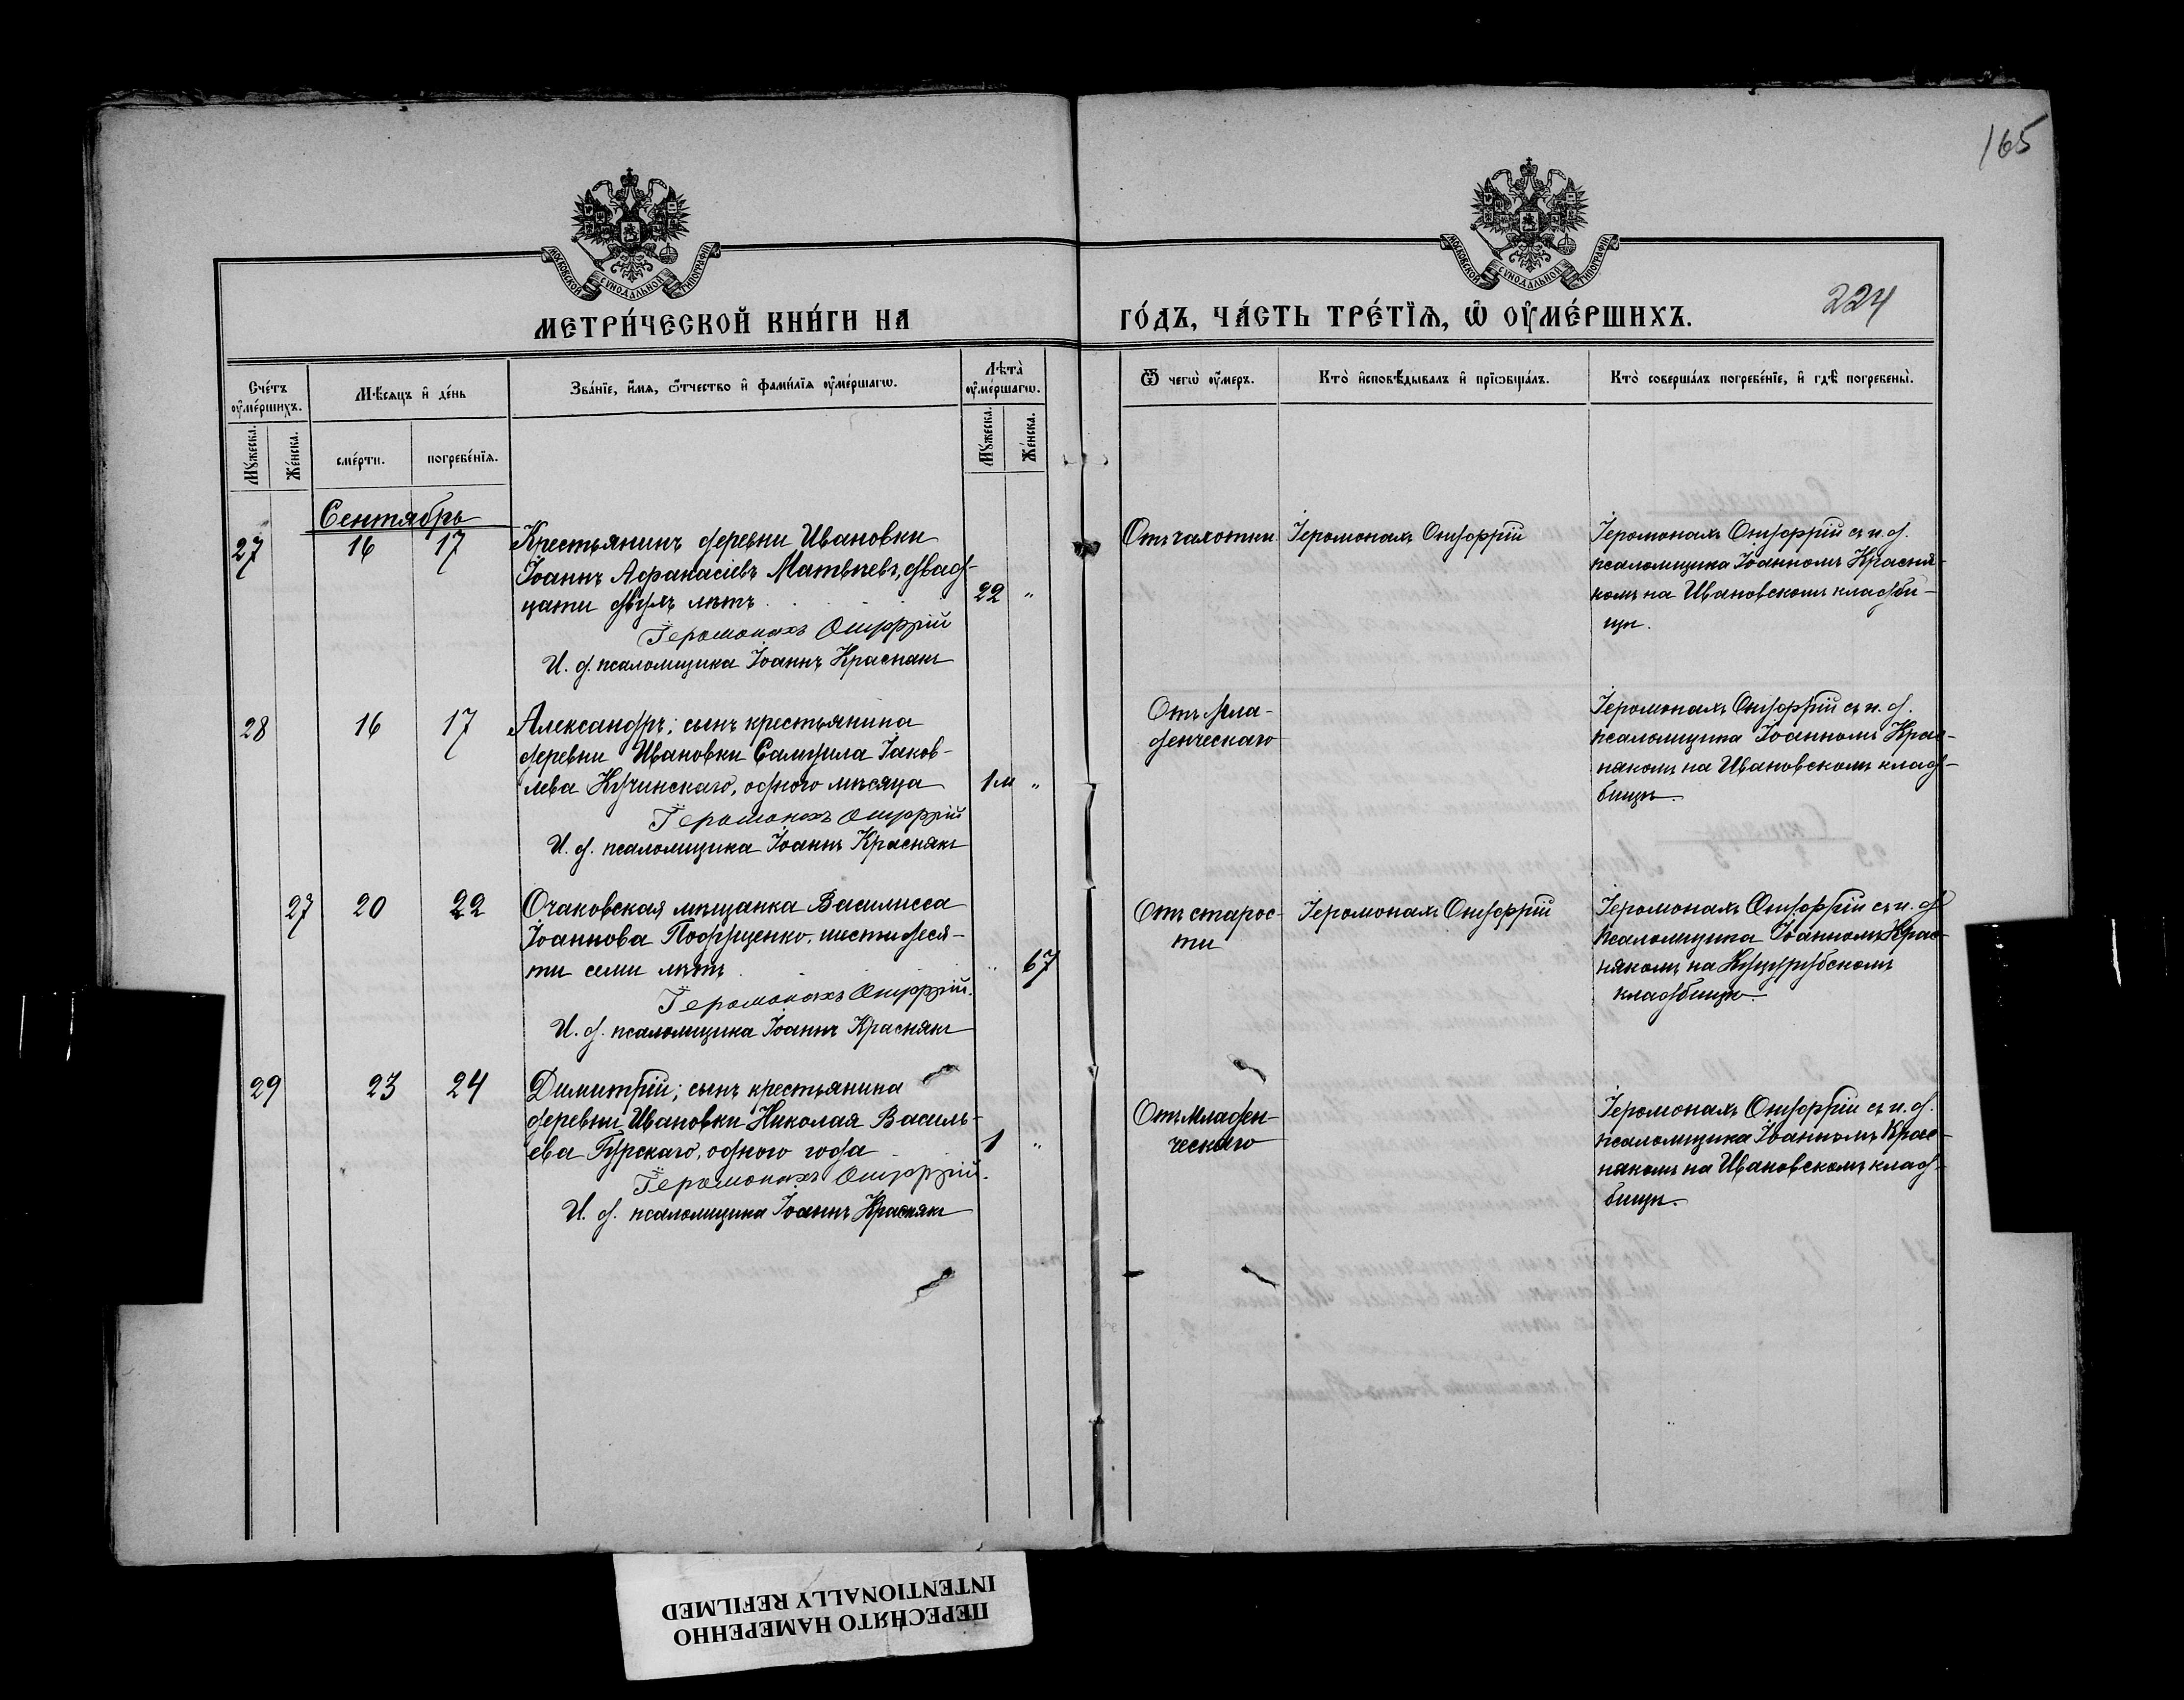 165
МОСКОВСКОЙ СѴНОДАЛЬНОЙ ТИПОГРАФІИ
МОСКОВСКОЙ СѴНОДАЛЬНОЙ ТИПОГРАФІИ
МЕТРИ́ЧЕСКОЙ КНИ́ГИ НА ГО́ДЪ, ЧА́СТЬ ТРЕ́ТІѦ, Ѡ҆ ОУ҆МЕ́РШИХЪ.
224
Сче́тъ оу҆ме́ршихъ.
Мѣ́сѧцъ и҆ де́нь
Зва́нїе, и҆́мѧ, ѻ҆́тчество и҆ фами́лїѧ оу҆ме́ршагѡ.
Лѣ́та оу҆ме́ршагѡ.
Ѿ чегѡ̀ оу҆́меръ.
Кто̀ и҆сповѣ́дывалъ и҆ прїѡбща́лъ.
Кто̀ соверша́лъ погребе́нїе, и҆ гдѣ̀ погребены̀.
Мꙋ́жеска.
Же́нска.
сме́рти.
погребе́нїѧ.
Мꙋ́жеска.
Же́нска.
Сентябрь
27 16 17
Крестьянинъ деревни Ивановки
Іоаннъ Аѳанасіевъ Матвѣевъ, двад-
цати двухъ лѣтъ . 22 "
Іеромонахъ Онуфрій
И. д. псаломщика Іоаннъ Краснякъ
Отъ чахотки
Іеромонахъ Онуфрій
Іеромонахъ Онуфрій съ и. д.
псаломщика Іоанномъ Красня-
комъ на Ивановскомъ кладби-
щѣ.
28 16 17
Александръ; сынъ крестьянина
деревни Ивановки Самуила Іаков-
лева Кучинскаго, одного мѣсяца 1 м "
Іеромонахъ Онуфрій
И. д. псаломщика Іоаннъ Краснякъ
Отъ мла-
денческаго
Іеромонахъ Онуфрій съ и. д.
псаломщика Іоанномъ Крас-
някомъ на Ивановскомъ клад-
бищѣ.
27 20 22
Очаковская мѣщанка Василисса
Іоаннова Подгущенко, шестидеся-
ти семи лѣтъ . " 67
Іеромонахъ Онуфрій.
И. д. псаломщика Іоаннъ Краснякъ
Отъ старос-
ти
Іеромонахъ Онуфрій
Іеромонахъ Онуфрій съ и. д.
псаломщика Іоанномъ Крас-
някомъ на Куцурубскомъ
кладбищѣ.
29 23 24
Димитрій; сынъ крестьянина
деревни Ивановки Николая Василь-
ева Гурскаго, одного года 1 "
Іеромонахъ Онуфрій.
И. д. псаломщика Іоаннъ Краснякъ
Отъ младен-
ческаго
Іеромонахъ Онуфрій съ и. д.
псаломщика Іоанномъ Крас-
някомъ на Ивановскомъ клад-
бищѣ.
ПЕРЕСНЯТО НАМЕРЕННО
INTENTIONALLY REFILMED